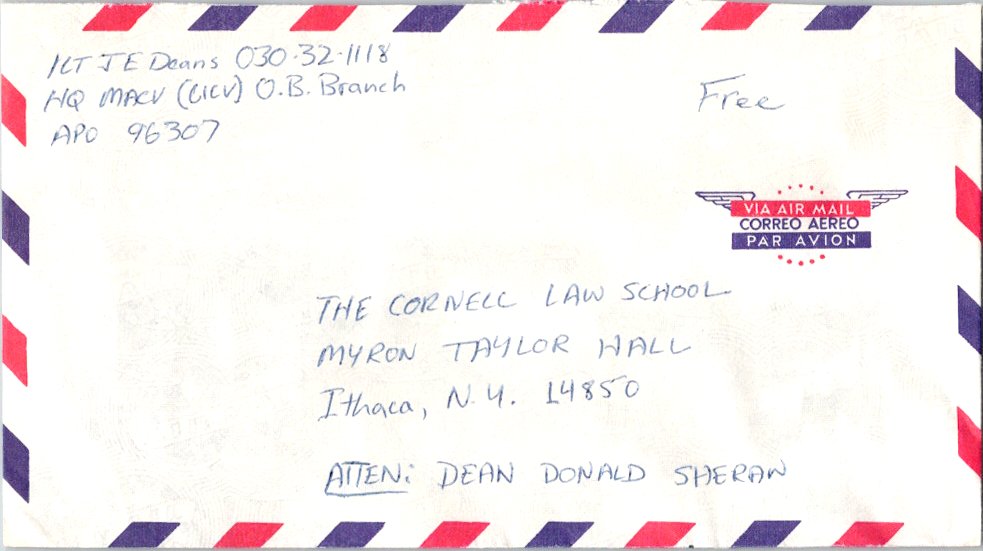 1LT J E Deans 030-32-1118
HQ MACV (CICV) O.B. Branch
APO 96307
Free
VIA AIR MAIL
CORREO AEREO
PAR AVION
THE CORNELL LAW SCHOOL
MYRON TAYLOR HALL
Ithaca, N.Y. 14850
ATTEN: DEAN DONALD SHERAW